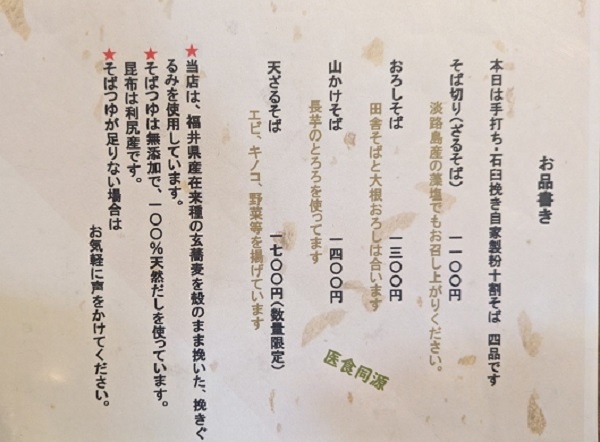 お品書き
本日は手打ち・石臼挽き自家製粉十割そば 四品です
そば切り(ざるそば) 一一〇〇円
淡路島産の藻塩でもお召し上がりください。
おろしそば 一三〇〇円
田舎そばと大根おろしは合います
山かけそば 一四〇〇円
長芋のとろろを使ってます
天ざるそば 一七〇〇円(数量限定)
エビ、キノコ、野菜等を揚げています
医食同源
★当店は、福井県産在来種の玄蕎麦を殻のまま挽いた、挽きぐ
るみを使用しています。
★そばつゆは無添加で、一〇〇%天然だしを使っています。
昆布は利尻産です。
★そばつゆが足りない場合は
お気軽に声をかけてください。